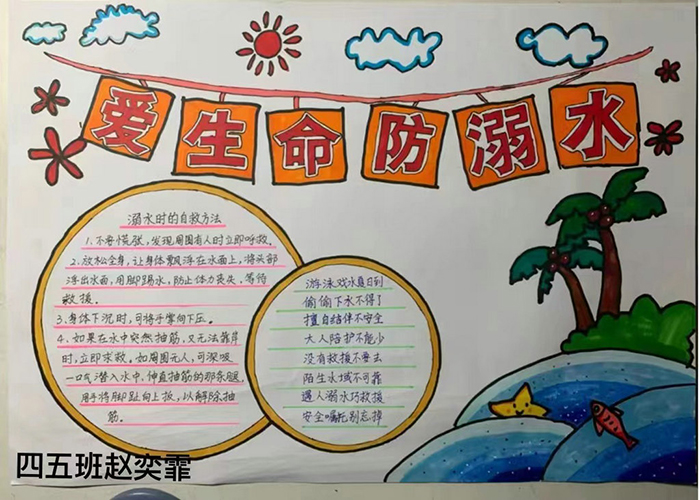 爱生命防溺水
溺水时的自救方法
1、不要慌张,发现周围有人时立即呼救。
2、放松全身,让身体飘浮在水面上,将头部
浮出水面,用脚踢水,防止体力丧失、等待
救援。
3、身体下沉时,可将手掌向下压。
4、如果在水中突然抽筋,又无法靠岸
时,立即求救,如周围无人,可深吸
一口气潜入水中、伸直抽筋的那条腿,
用手将脚趾向上扳,以解除抽
筋。
游泳戏水夏日到
偷偷下水不得了
擅自结伴不安全
大人陪护不能少
没有救援不要去
陌生水域不可靠
遇人溺水巧救援
安全嘱托别忘掉
四五班赵奕霏